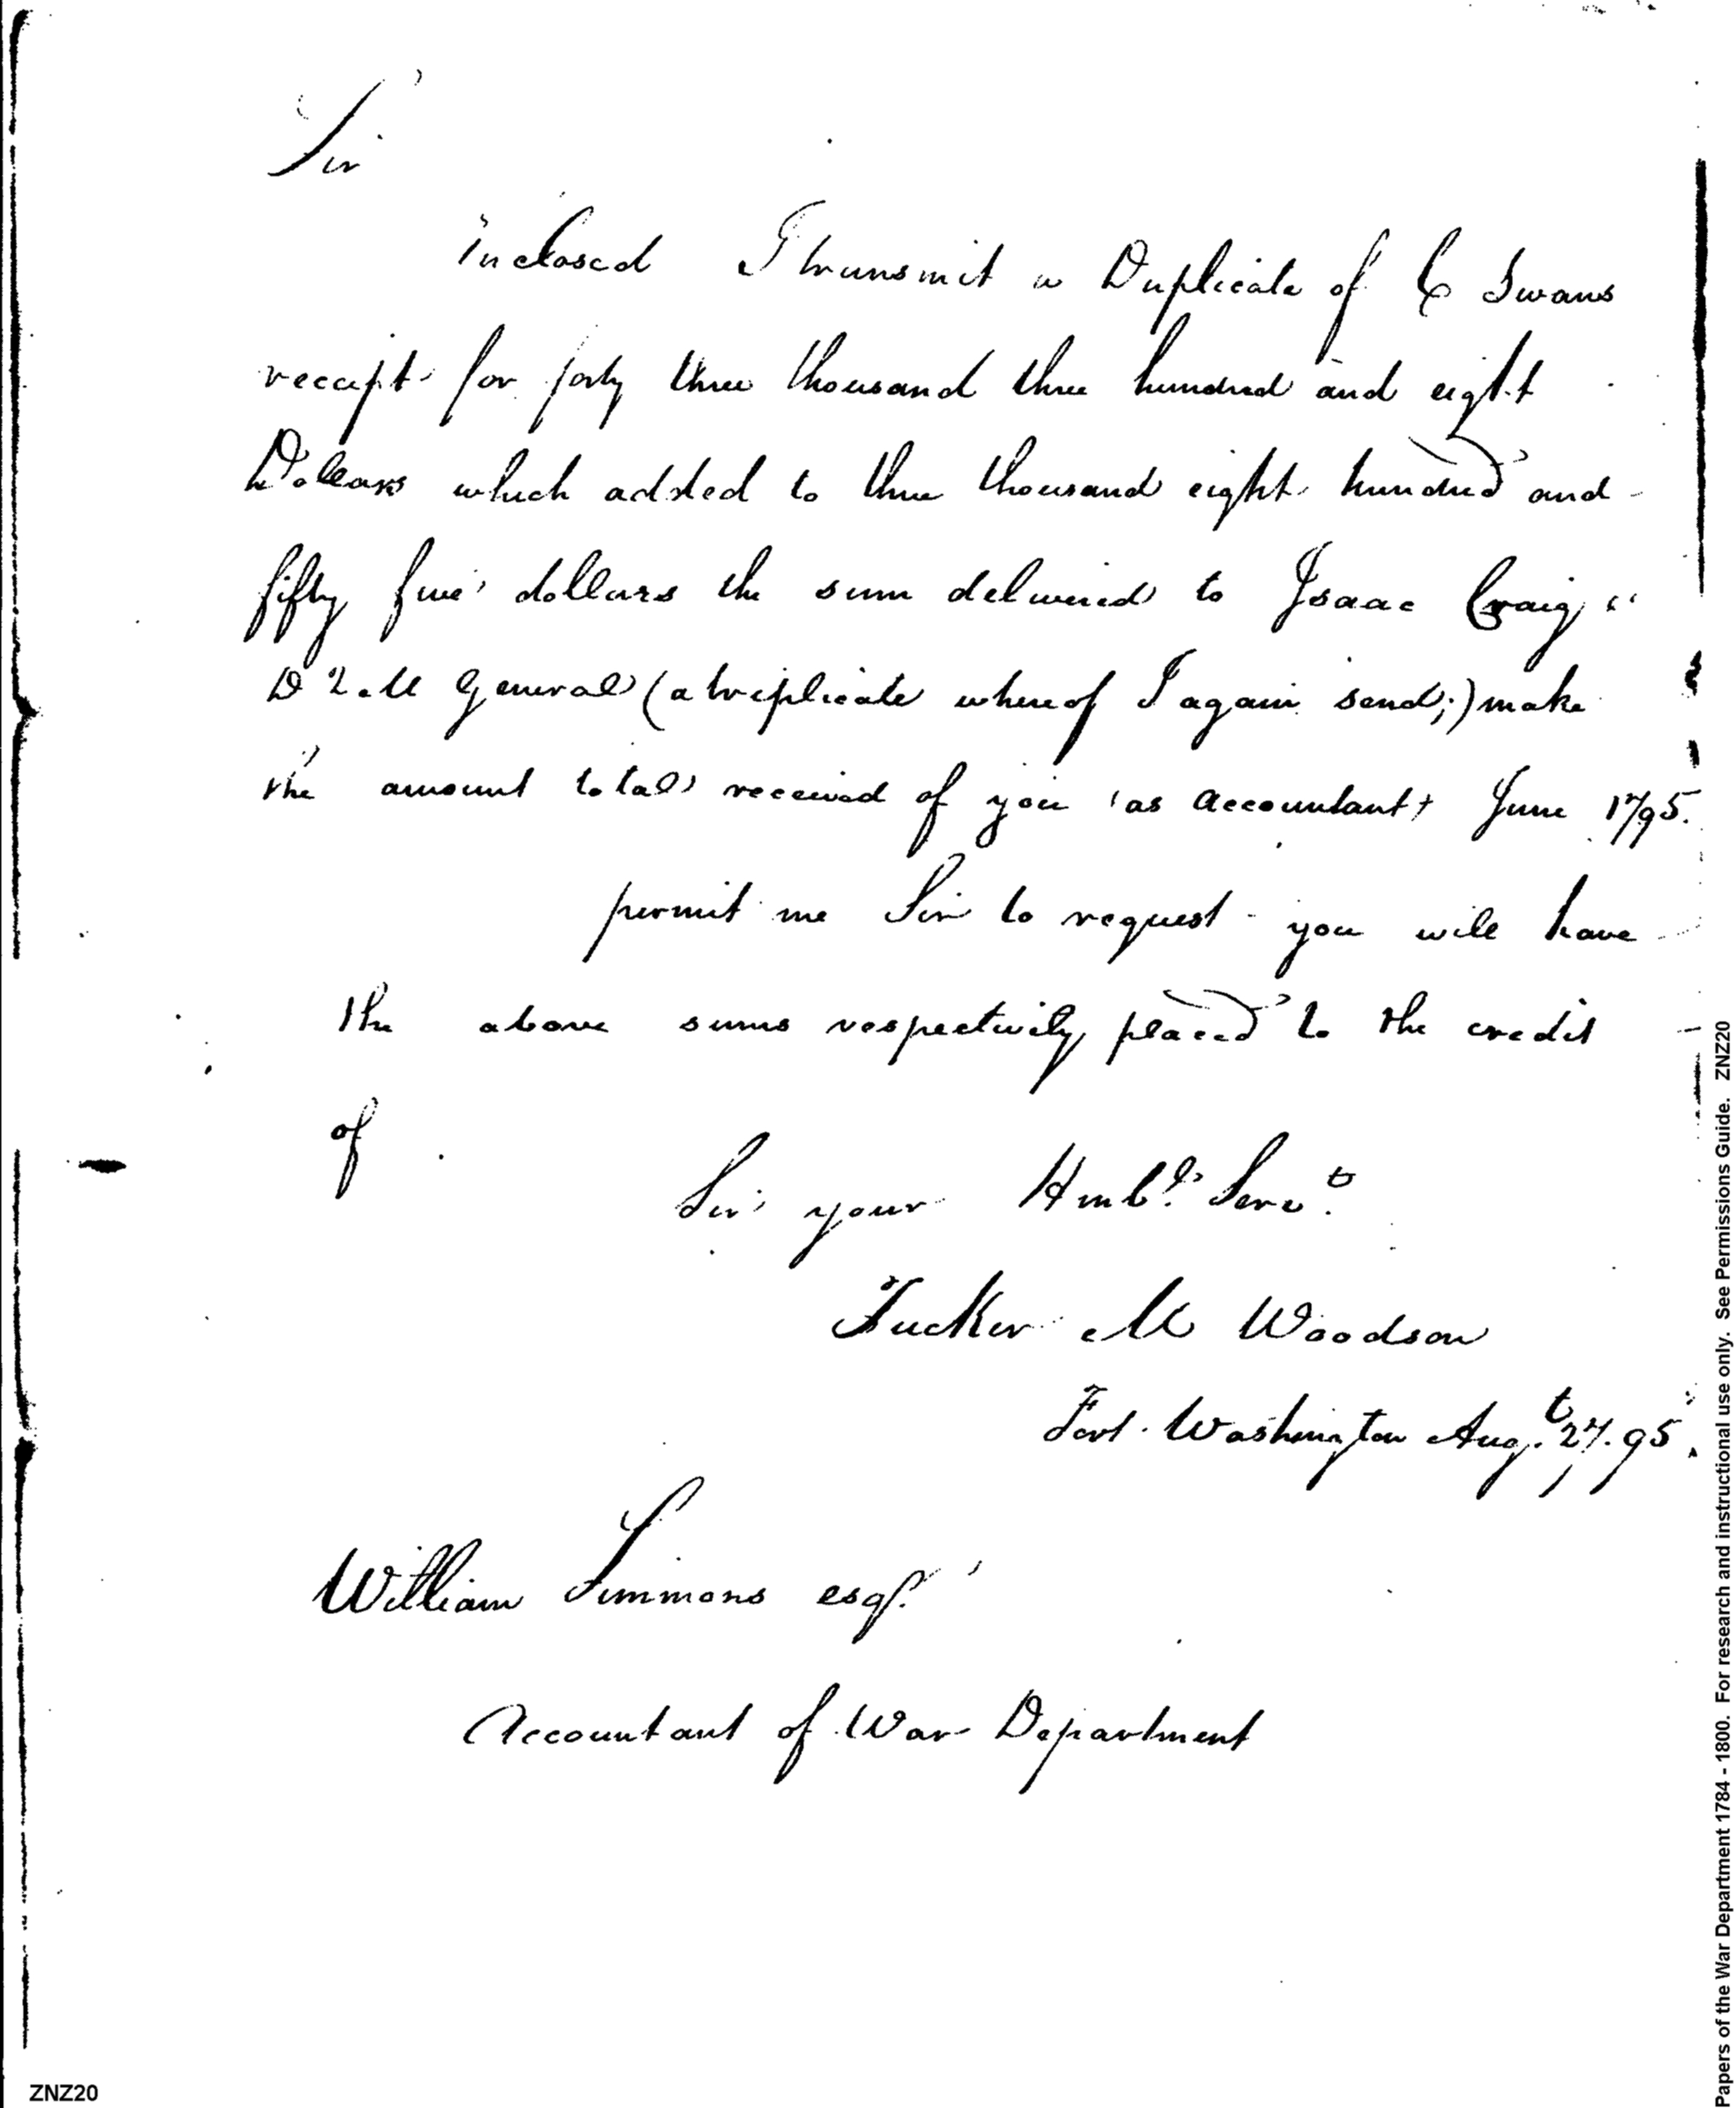 Sir
inclosed I transmit a Duplicate of C Swans
receipt for forty three thousand three hundred and eight
Dollars which added to three thousand eight hundred and
fifty five dollars the sum delivered to Isaac Craig "
D Q.M General (a triplicate whereof I again send;) make
the amount total received of you as accountant June 1795.
permit me Sir to request you will have
the above sums respectively placed to the credit
of
Sir your Hmbl. Servt.
Tucker M Woodson
Fort Washington Augt. 27. 95.
William Simmons esqr.
Accountant of War Department
ZNZ20
Papers of the War Department 1784 - 1800. For research and instructional use only. See Permissions Guide. ZNZ20